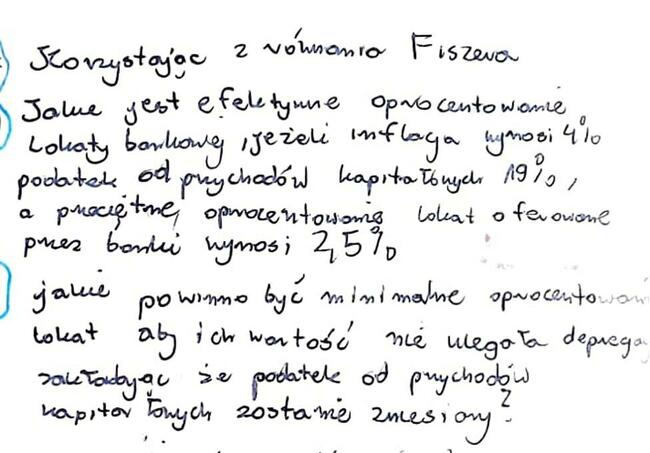 Korzystając z równania Fiszera
Jakie jest efektywne oprocentowanie
lokaty bankowej, jeżeli inflacja wynosi 4%
podatek od przychodów kapitałowych 19%,
a przeciętne oprocentowanie lokat oferowane
przez banki wynosi 2,5%
jakie powinno być minimalne oprocentowani
lokat aby ich wartość nie uległa deprecja
zakładając że podatek od przychodów
kapitałowych zostanie zniesiony?